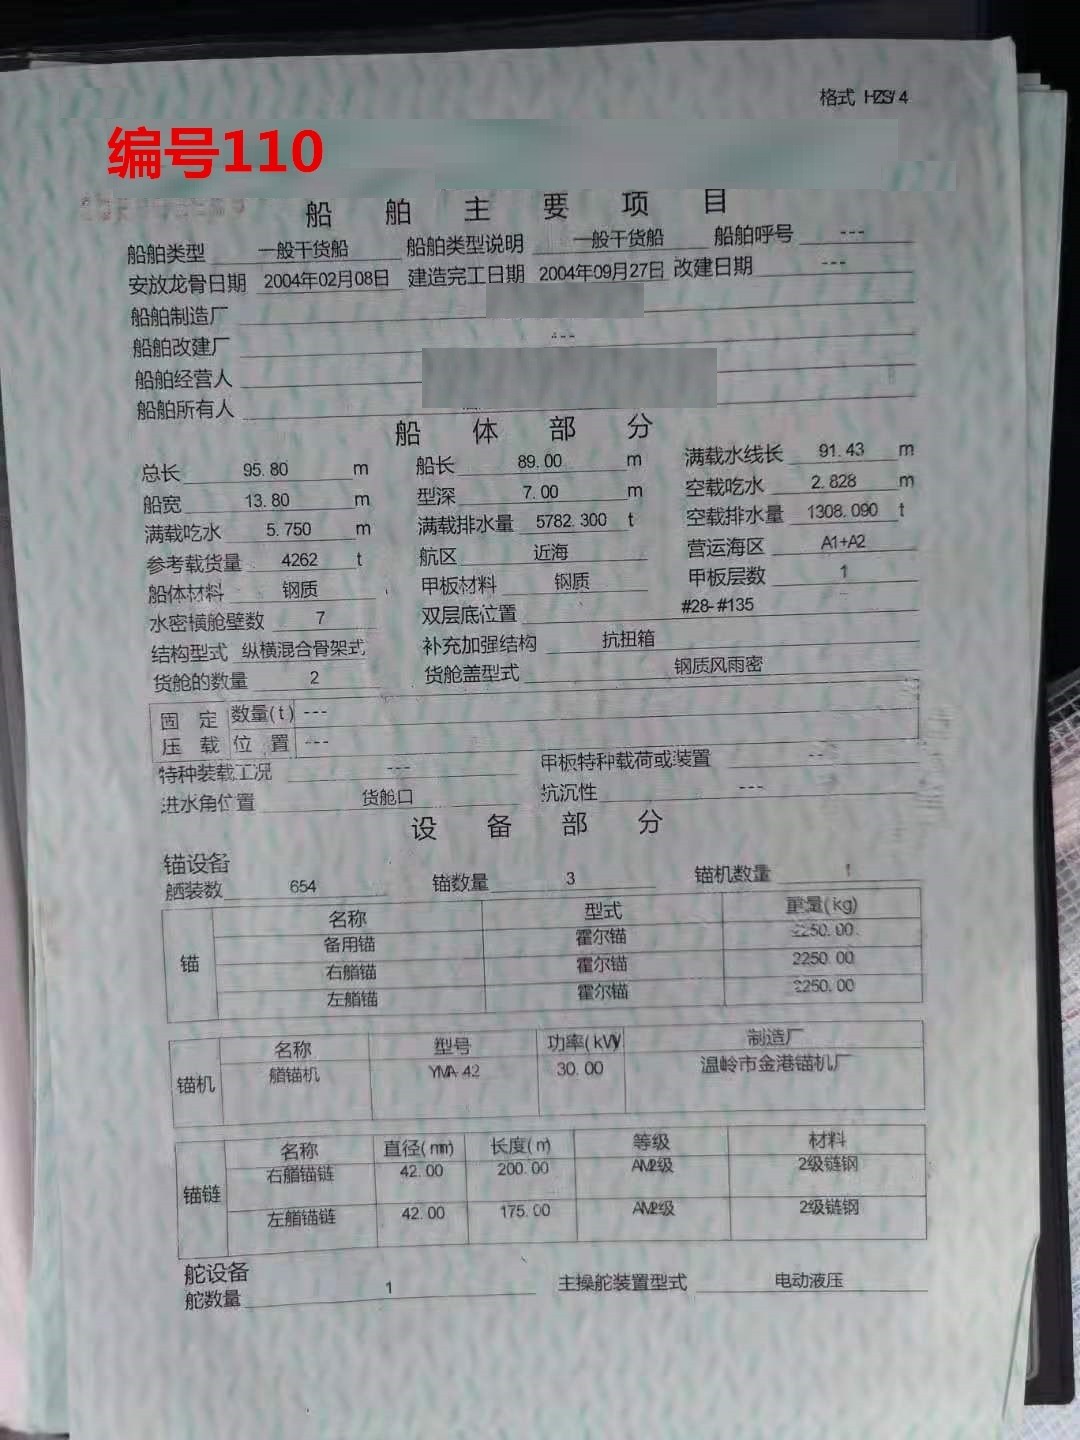 格式 HZS/4
编号110
船舶主要项目
船舶类型 一般干货船 船舶类型说明 一般干货船 船舶呼号 ---
安放龙骨日期 2004年02月08日 建造完工日期 2004年09月27日 改建日期 ---
船舶制造厂
船舶改建厂 ---
船舶经营人
船舶所有人
船体部分
总长 95.80 m 船长 89.00 m 满载水线长 91.43 m
船宽 13.80 m 型深 7.00 m 空载吃水 2.828 m
满载吃水 5.750 m 满载排水量 5782.300 t 空载排水量 1308.090 t
参考载货量 4262 t 航区 近海 营运海区 A1+A2
船体材料 钢质 甲板材料 钢质 甲板层数 1
水密横舱壁数 7 双层底位置 #28-#135
结构型式 纵横混合骨架式 补充加强结构 抗扭箱
货舱的数量 2 货舱盖型式 钢质风雨密
固定 数量(t) ---
压载 位置 ---
特种装载工况 --- 甲板特种载荷或装置 --
进水角位置 货舱口 抗沉性 ---
设备部分
锚设备
舾装数 654 锚数量 3 锚机数量 1
锚 名称 型式 重量(kg)
备用锚 霍尔锚 2250.00
右艏锚 霍尔锚 2250.00
左艏锚 霍尔锚 2250.00
锚机 名称 型号 功率(kW) 制造厂
艏锚机 YMA-42 30.00 温岭市金港锚机厂
锚链 名称 直径(mm) 长度(m) 等级 材料
右艏锚链 42.00 200.00 AM2级 2级链钢
左艏锚链 42.00 175.00 AM2级 2级链钢
舵设备
舵数量 1 主操舵装置型式 电动液压